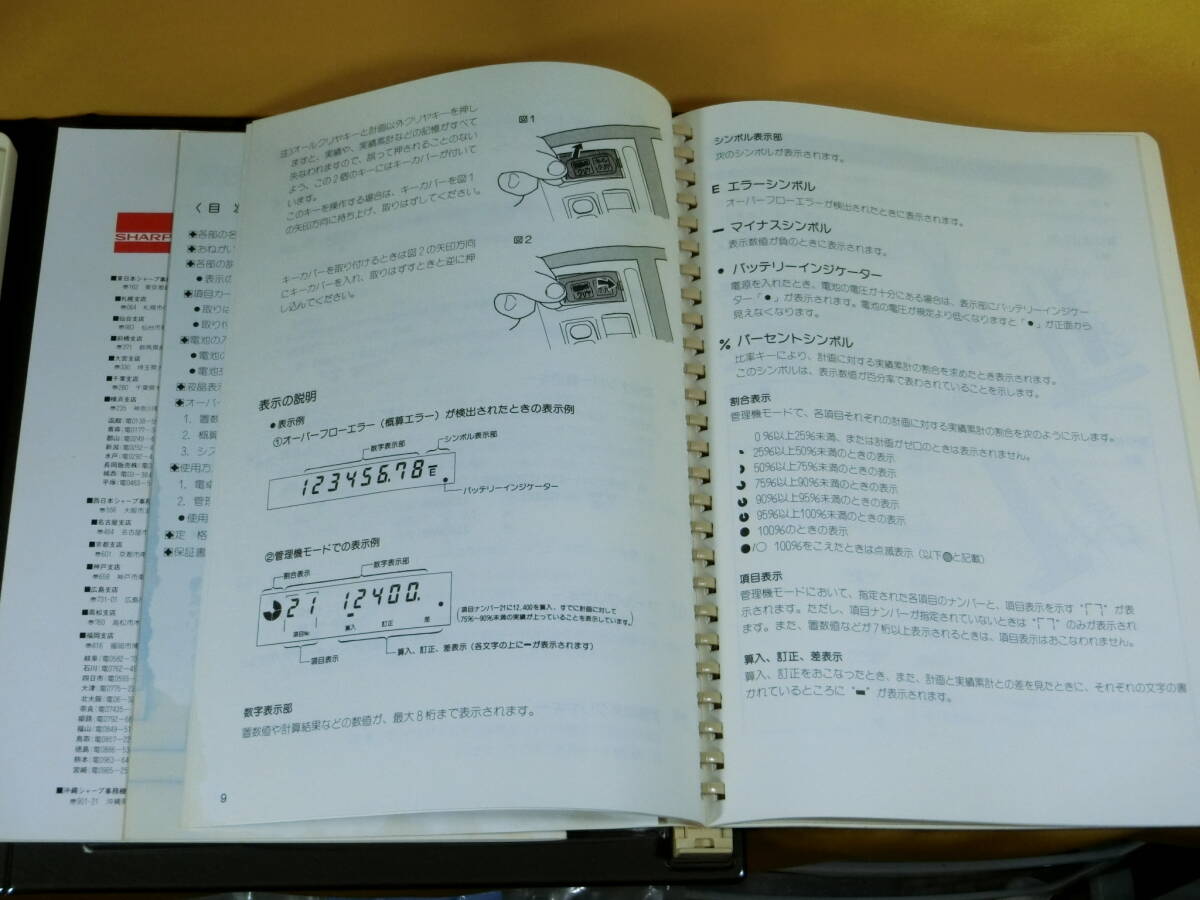 SHARP
■東日本シャープ事
■札幌支店
■仙台支店
■前橋支店
■大宮支店
■千葉支店
■横浜支店
■西日本シャープ事務
■名古屋支店
■京都支店
■神戸支店
■広島支店
■高松支店
■福岡支店
■沖縄シャープ事務機
〈目
各部の名
おねがい
各部の説
●表示の
項目カー
●取りは
●取り付
電池の入
●電池の
液晶表示
オーバー
1. 置数
2. 概算
3. シス
使用方
1. 電卓
2. 管理
●使用
定 格
保証書
注)オールクリヤキーと計画以外クリヤキーを押し
ますと、実績や、実績累計などの記憶がすべて
失なわれますので、誤って押されることのない
よう、この2個のキーにはキーカバーが付いて
います。
このキーを操作する場合は、キーカバーを図1
の矢印方向に持ち上げ、取りはずしてください。
図1
キーカバーを取り付けるときは図2の矢印方向
にキーカバーを入れ、取りはずすときと逆に押
し込んでください。
図2
表示の説明
●表示例
①オーバーフローエラー（概算エラー）が検出されたときの表示例
数字表示部
シンボル表示部
123456.78 E
バッテリーインジケーター
②管理機モードでの表示例
割合表示
数字表示部
21 12400.
項目No.
算入 訂正 差
(項目ナンバー21に12,400を算入、すでに計画に対して
75%~90%未満の実績が上っていることを表示しています。)
項目表示
算入、訂正、差表示（各文字の上に━が表示されます）
数字表示部
置数値や計算結果などの数値が、最大8桁まで表示されます。
9
シンボル表示部
次のシンボルが表示されます。
E エラーシンボル
オーバーフローエラーが検出されたときに表示されます。
− マイナスシンボル
表示数値が負のときに表示されます。
● バッテリーインジケーター
電源を入れたとき、電池の電圧が十分にある場合は、表示部にバッテリーインジケー
ター「●」が表示されます。電池の電圧が規定より低くなりますと「●」が正面から
見えなくなります。
% パーセントシンボル
比率キーにより、計画に対する実績累計の割合を求めたとき表示されます。
このシンボルは、表示数値が百分率で表わされていることを示します。
割合表示
管理機モードで、各項目それぞれの計画に対する実績累計の割合を次のように示します。
0%以上25%未満、または計画がゼロのときは表示されません。
25%以上50%未満のときの表示
50%以上75%未満のときの表示
75%以上90%未満のときの表示
90%以上95%未満のときの表示
95%以上100%未満のときの表示
● 100%のときの表示
●/○ 100%をこえたときは点滅表示（以下◉と記載）
項目表示
管理機モードにおいて、指定された各項目のナンバーと、項目表示を示す"「 ̄」"が表
示されます。ただし、項目ナンバーが指定されていないときは"「 ̄」"のみが表示され
ます。また、置数値などが7桁以上表示されるときは、項目表示はおこなわれません。
算入、訂正、差表示
算入、訂正をおこなったとき、また、計画と実績累計との差を見たときに、それぞれの文字の書
かれているところに"━"が表示されます。